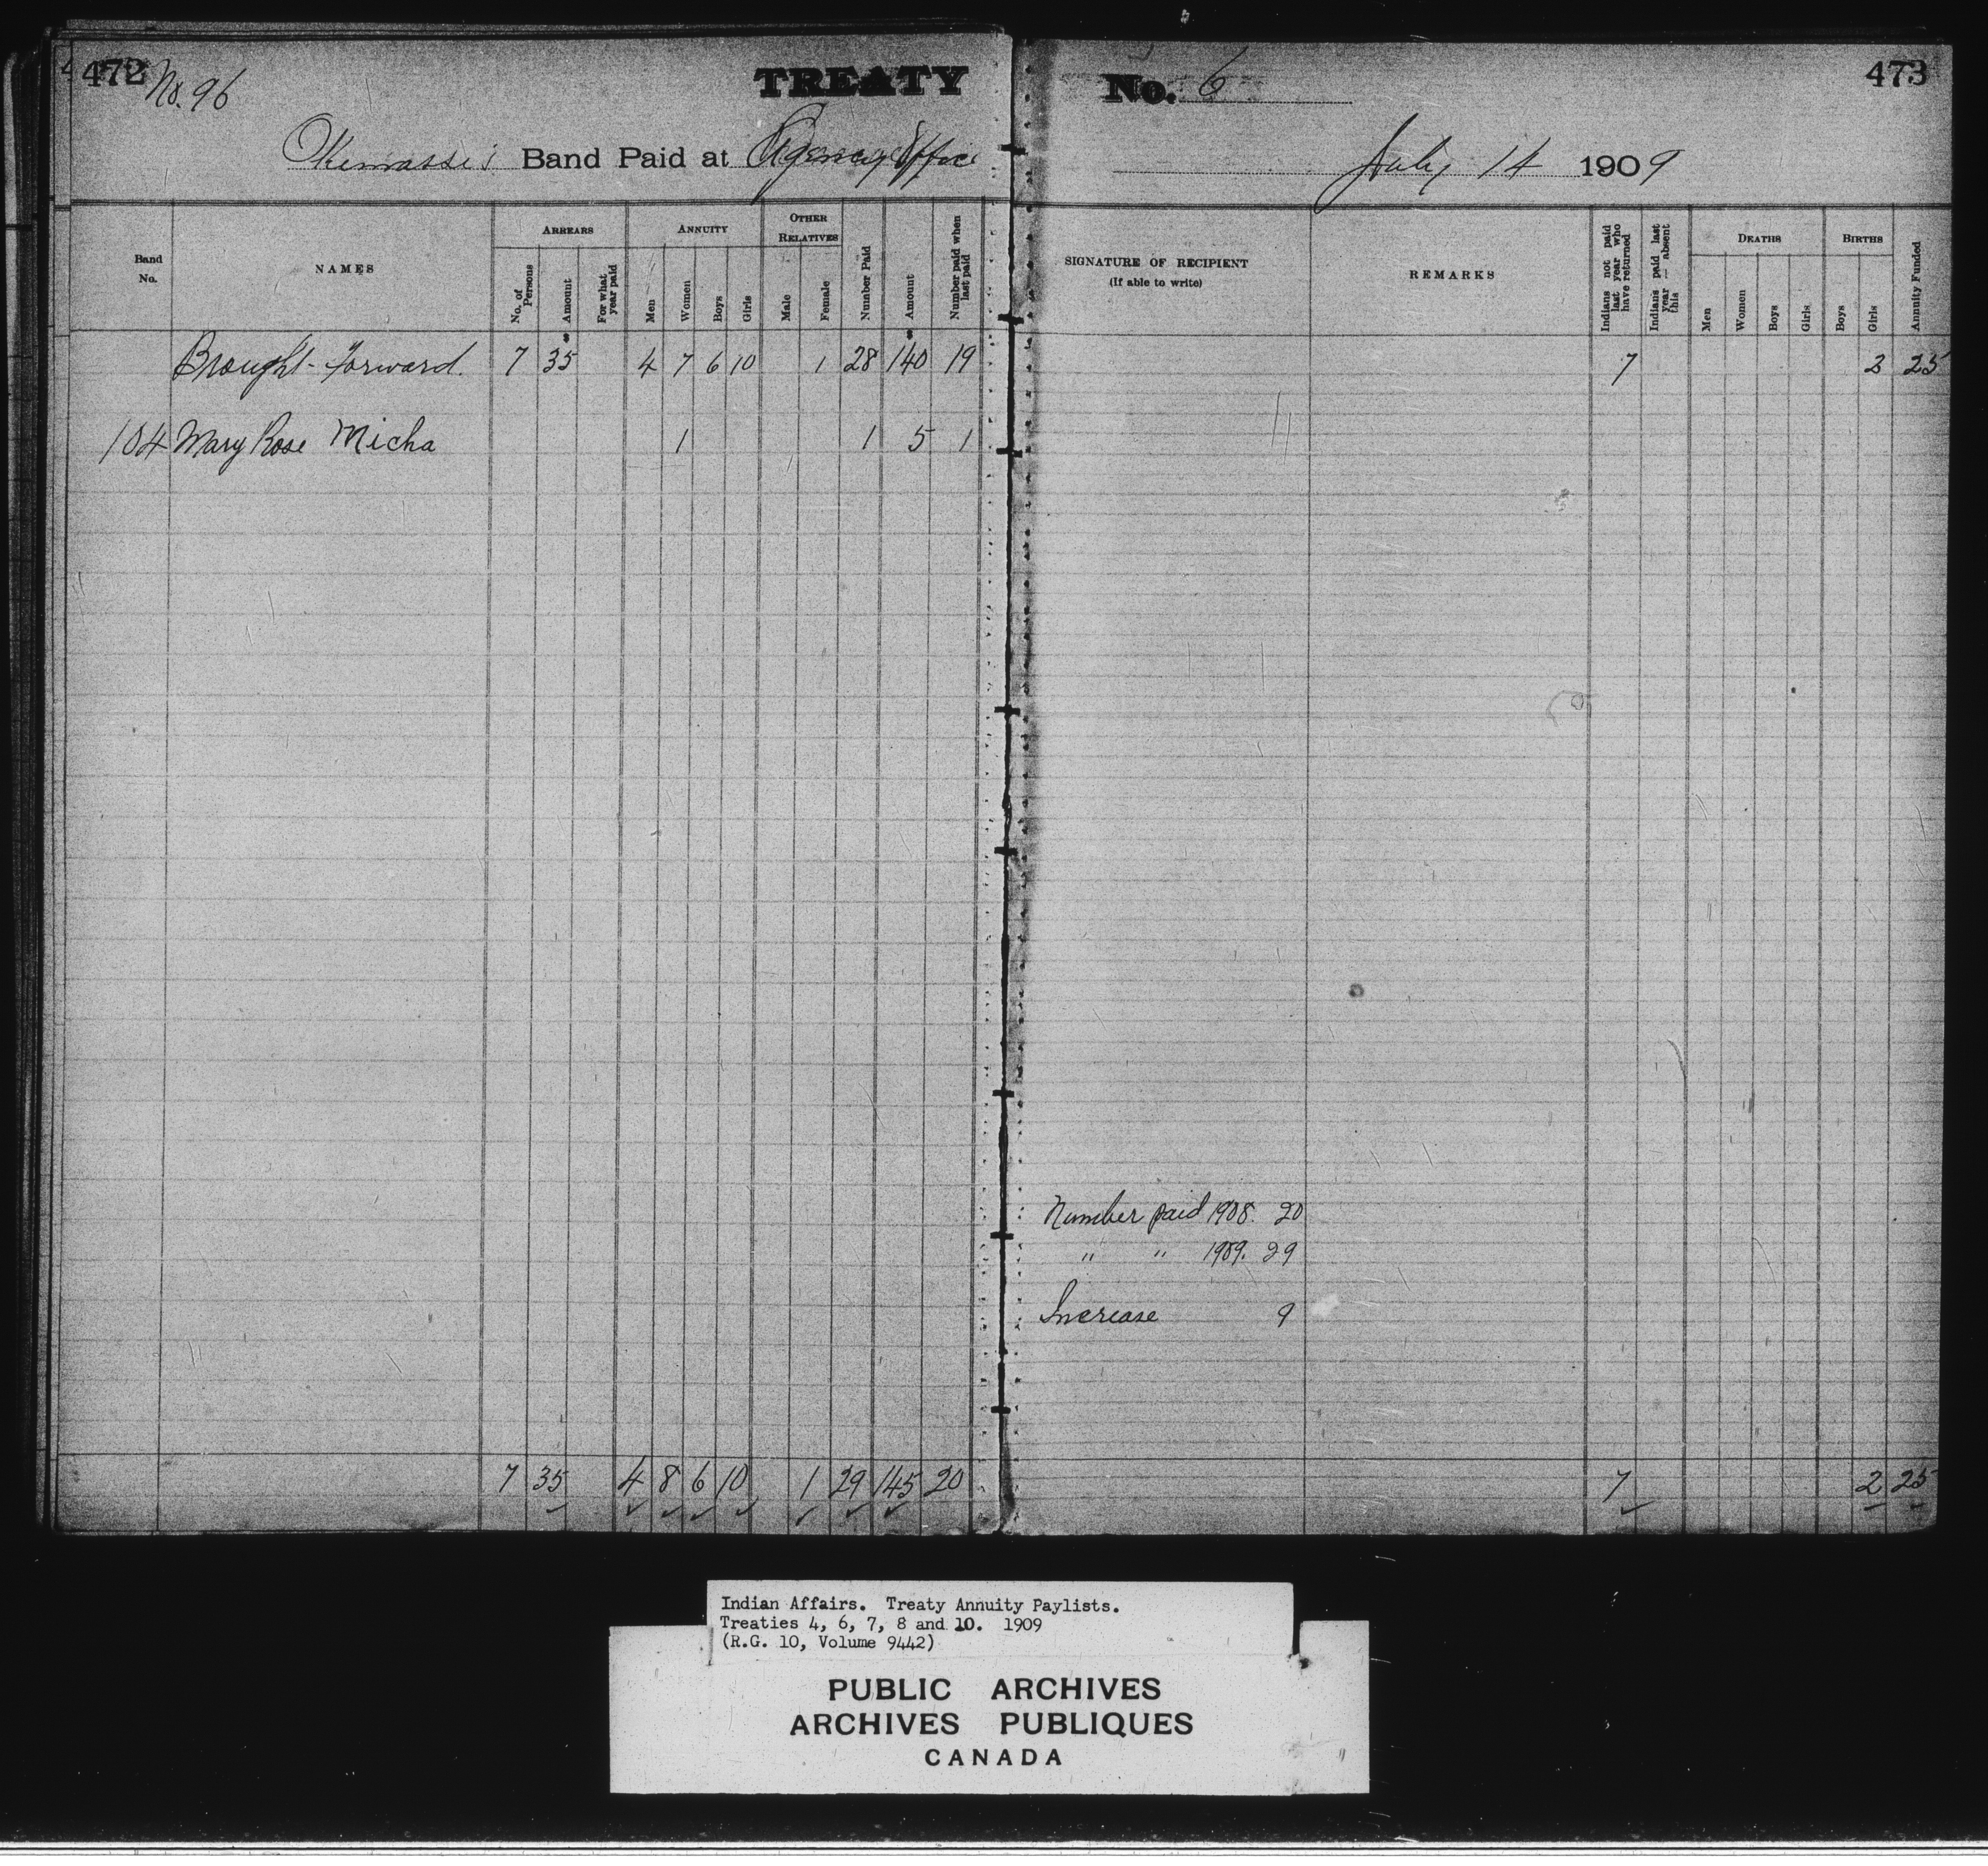 472 No. 96 TREATY No. 6 473
Okemassis Band Paid at Agency Office July 14 1909
Band No. NAMES ARREARS ANNUITY OTHER RELATIVES Number Paid Amount Number paid when last paid SIGNATURE OF RECIPIENT (If able to write) REMARKS Indians not paid last year who have returned Indians paid last year — absent this DEATHS BIRTHS Annuity Funded
No. of Persons Amount For what year paid Men Women Boys Girls Male Female Men Women Boys Girls Boys Girls
Brought forward. 7 $35 4 7 6 10 1 28 $140 19 7 2 25
104 Mary Rose Micha 1 1 5 1
Number paid 1908. 20
" " 1909. 29
Increase 9
7 35 4 8 6 10 1 29 145 20 7 2 25
Indian Affairs. Treaty Annuity Paylists.
Treaties 4, 6, 7, 8 and 10. 1909
(R.G. 10, Volume 9442)
PUBLIC ARCHIVES
ARCHIVES PUBLIQUES
CANADA